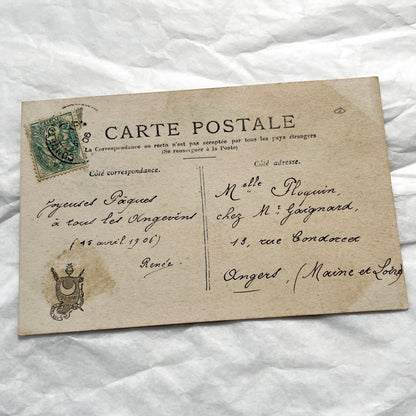 8
CARTE POSTALE
La Correspondance au recto n'est pas acceptée par tous les pays étrangers
(Se renseigner à la Poste)
Côté correspondance.
Côté adresse.
Joyeuses Pâques
à tous les Angevins
(15 avril 1906)
Renée
Melle Ploquin,
chez Mr Gaignard,
13, rue Condorcet
Angers, (Maine et Loire)